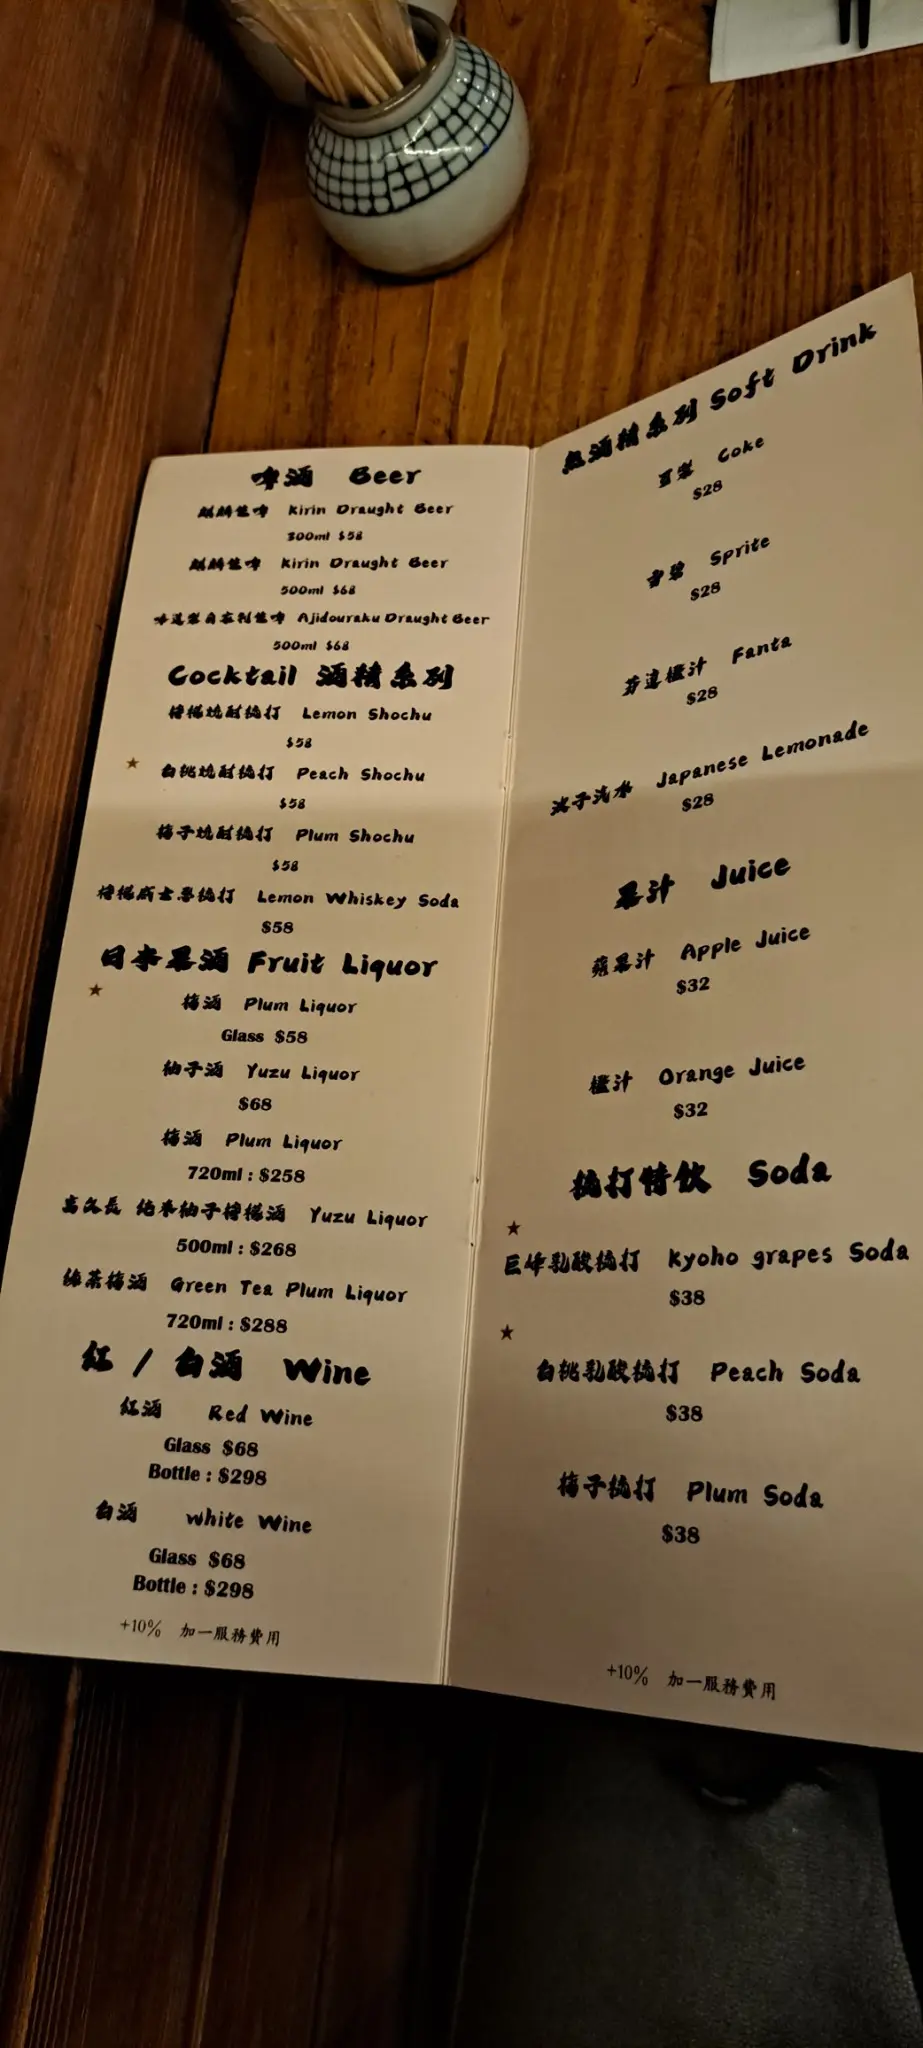 啤酒 Beer
麒麟生啤 Kirin Draught Beer
300ml $58
麒麟生啤 Kirin Draught Beer
500ml $68
味道楽自家製生啤 Ajidouraku Draught Beer
500ml $68
Cocktail 酒精系列
檸檬燒酎梳打 Lemon Shochu
$58
★ 白桃燒酎梳打 Peach Shochu
$58
梅子燒酎梳打 Plum Shochu
$58
檸檬威士忌梳打 Lemon Whiskey Soda
$58
日本果酒 Fruit Liquor
★
梅酒 Plum Liquor
Glass $58
柚子酒 Yuzu Liquor
$68
梅酒 Plum Liquor
720ml : $258
高久長 純米柚子檸檬酒 Yuzu Liquor
500ml : $268
綠茶梅酒 Green Tea Plum Liquor
720ml : $288
紅 / 白酒 Wine
紅酒 Red Wine
Glass $68
Bottle : $298
白酒 White Wine
Glass $68
Bottle : $298
+10% 加一服務費用
無酒精系列 Soft Drink
可樂 Coke
$28
雪碧 Sprite
$28
芬達橙汁 Fanta
$28
波子汽水 Japanese Lemonade
$28
果汁 Juice
蘋果汁 Apple Juice
$32
橙汁 Orange Juice
$32
梳打特飲 Soda
★
巨峰乳酸梳打 Kyoho grapes Soda
$38
★
白桃乳酸梳打 Peach Soda
$38
梅子梳打 Plum Soda
$38
+10% 加一服務費用